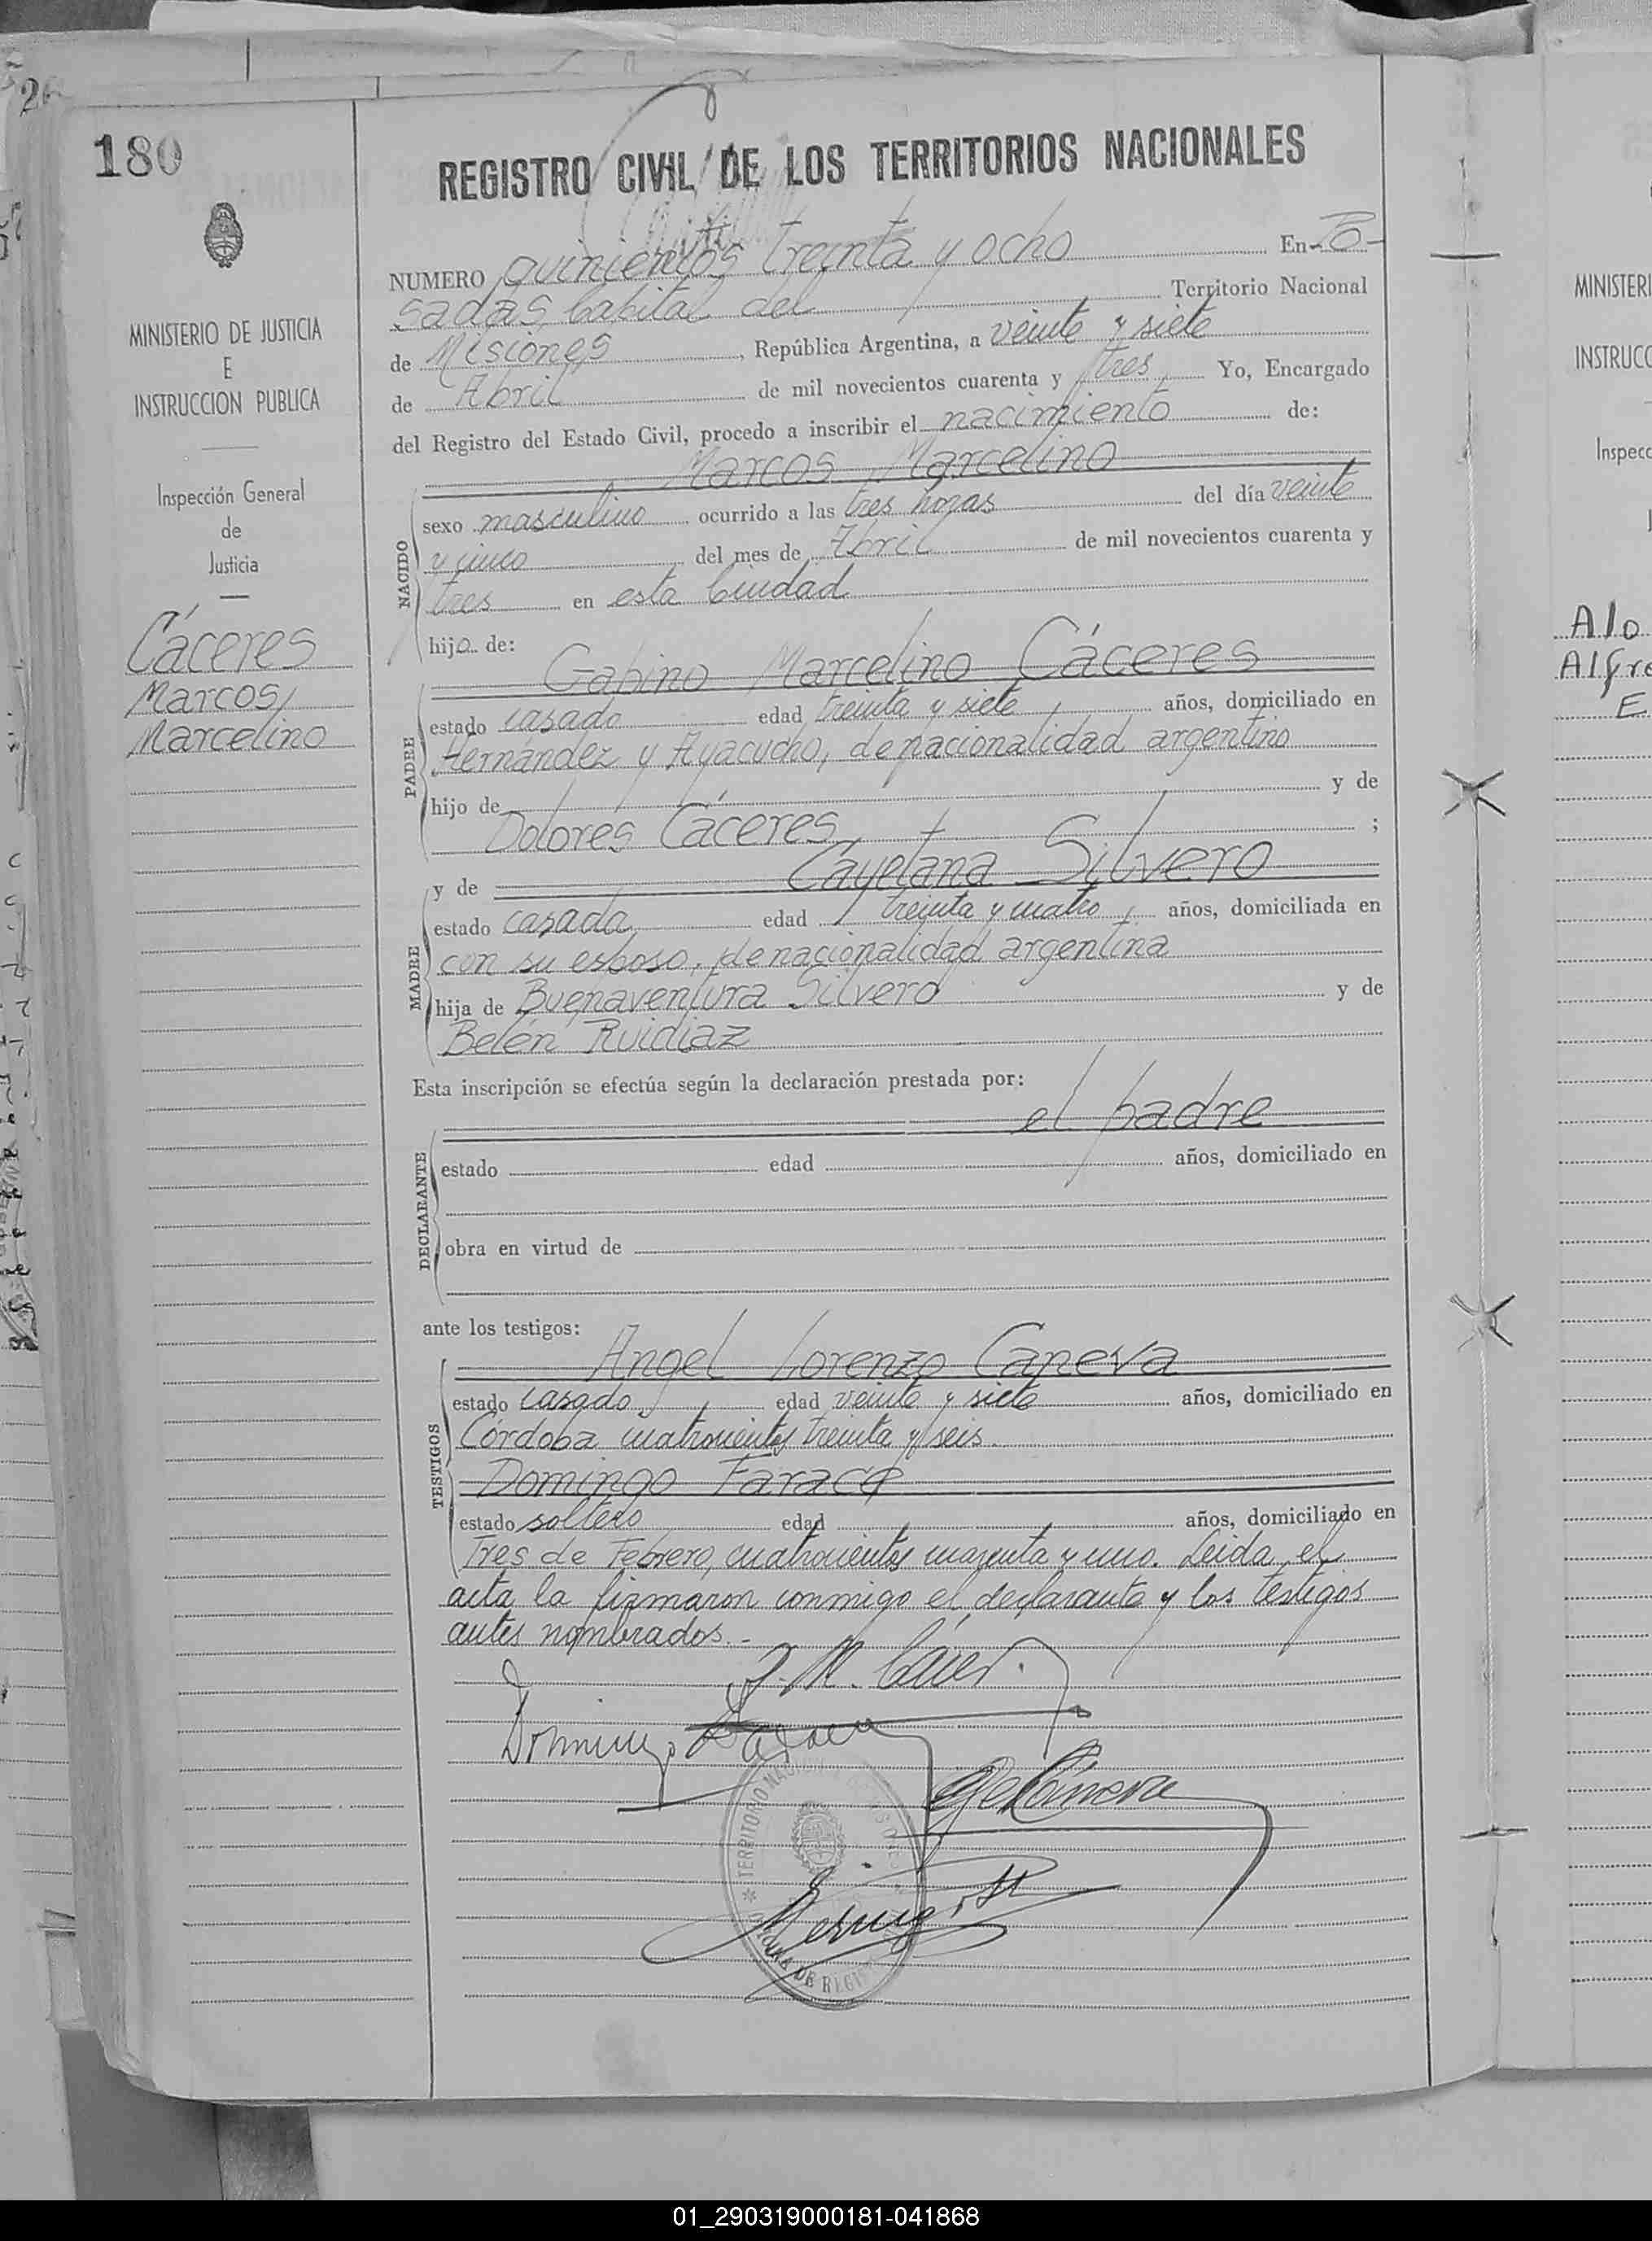 180
REGISTRO CIVIL DE LOS TERRITORIOS NACIONALES
MINISTERIO DE JUSTICIA
E
INSTRUCCION PUBLICA
Inspección General
de
Justicia
Cáceres
Marcos
Marcelino
NUMERO quinientos treinta y ocho En Po-
sadas, Capital del Territorio Nacional
de Misiones, República Argentina, a veinte y siete
de Abril de mil novecientos cuarenta y tres, Yo, Encargado
del Registro del Estado Civil, procedo a inscribir el nacimiento de:
Marcos Marcelino
NACIDO
sexo masculino ocurrido a las tres horas del día veinte
y cinco del mes de Abril de mil novecientos cuarenta y
tres en esta Ciudad
hijo de:
Gabino Marcelino Cáceres
PADRE
estado casado edad treinta y siete, años, domiciliado en
Hernández y Ayacucho, de nacionalidad argentino
hijo de y de
Dolores Cáceres ;
y de Cayetana Silvero
MADRE
estado casada edad treinta y cuatro, años, domiciliada en
con su esposo, de nacionalidad argentina
hija de Buenaventura Silvero y de
Belén Ruidiaz
Esta inscripción se efectúa según la declaración prestada por:
el padre
DECLARANTE
estado edad años, domiciliado en
obra en virtud de
ante los testigos:
Angel Lorenzo Caneva
TESTIGOS
estado casado, edad veinte y siete años, domiciliado en
Córdoba cuatrocientos treinta y seis.
Domingo Farace
estado soltero edad años, domiciliado en
Tres de Febrero, cuatrocientos cuarenta y uno. Leida el
acta la firmaron conmigo el declarante y los testigos
antes nombrados.-
TERRITORIO NACIONAL
MINISTERI
INSTRUCC
Inspecc
Alo
Alfre
E
01_290319000181-041868